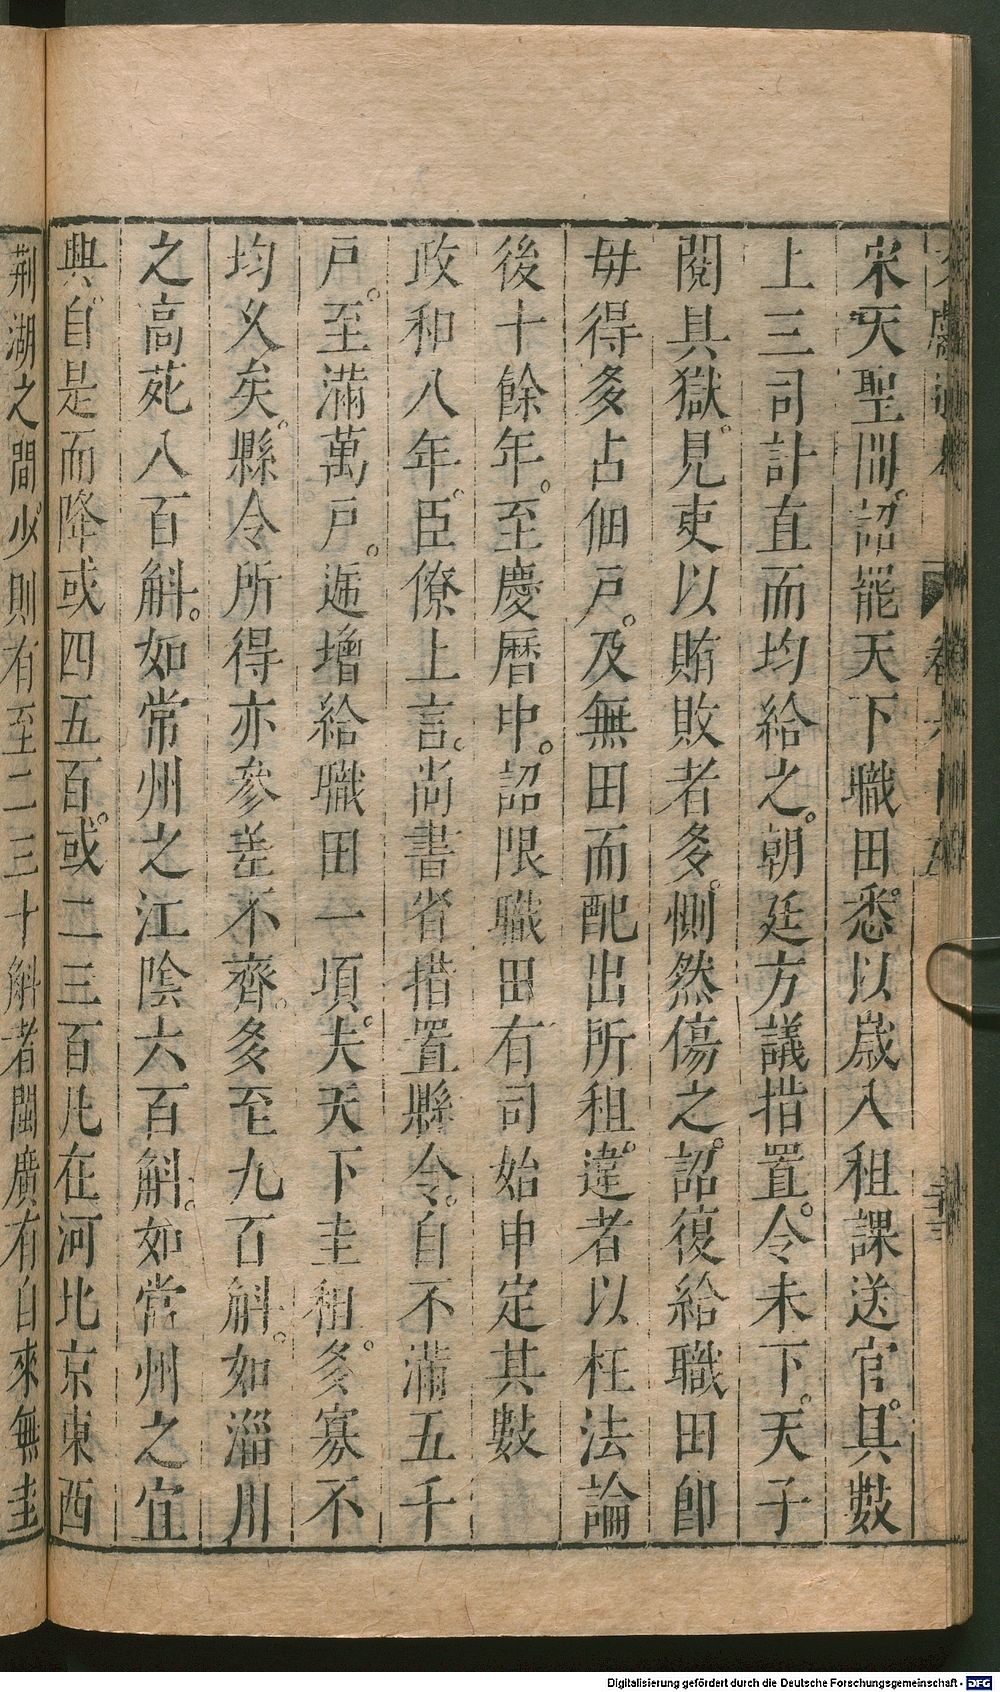 宋天聖間。詔罷天下職田。悉以歲入租課送官。具數
上三司計直而均給之。朝廷方議措置。令未下。天子
閱具獄。見吏以賄敗者多。惻然傷之。詔復給職田即
毋得多占佃戶。及無田而配出所租。違者以枉法論
後十餘年。至慶曆中。詔限職田有司始申定其數
政和八年。臣僚上言。尚書省措置縣令。自不滿五千
戶。至滿萬戶。遞增給職田一項。夫天下圭租。多寡不
均久矣。縣令所得亦參差不齊。多至九百斛。如淄川
之高苑八百斛。如常州之江陰六百斛。如常州之宜
興。自是而降或四五百。或二三百凡在河北京東西
荆湖之間。少則有至二三十斛者閩廣有自來無圭
Digitalisierung gefördert durch die Deutsche Forschungsgemeinschaft - DFG